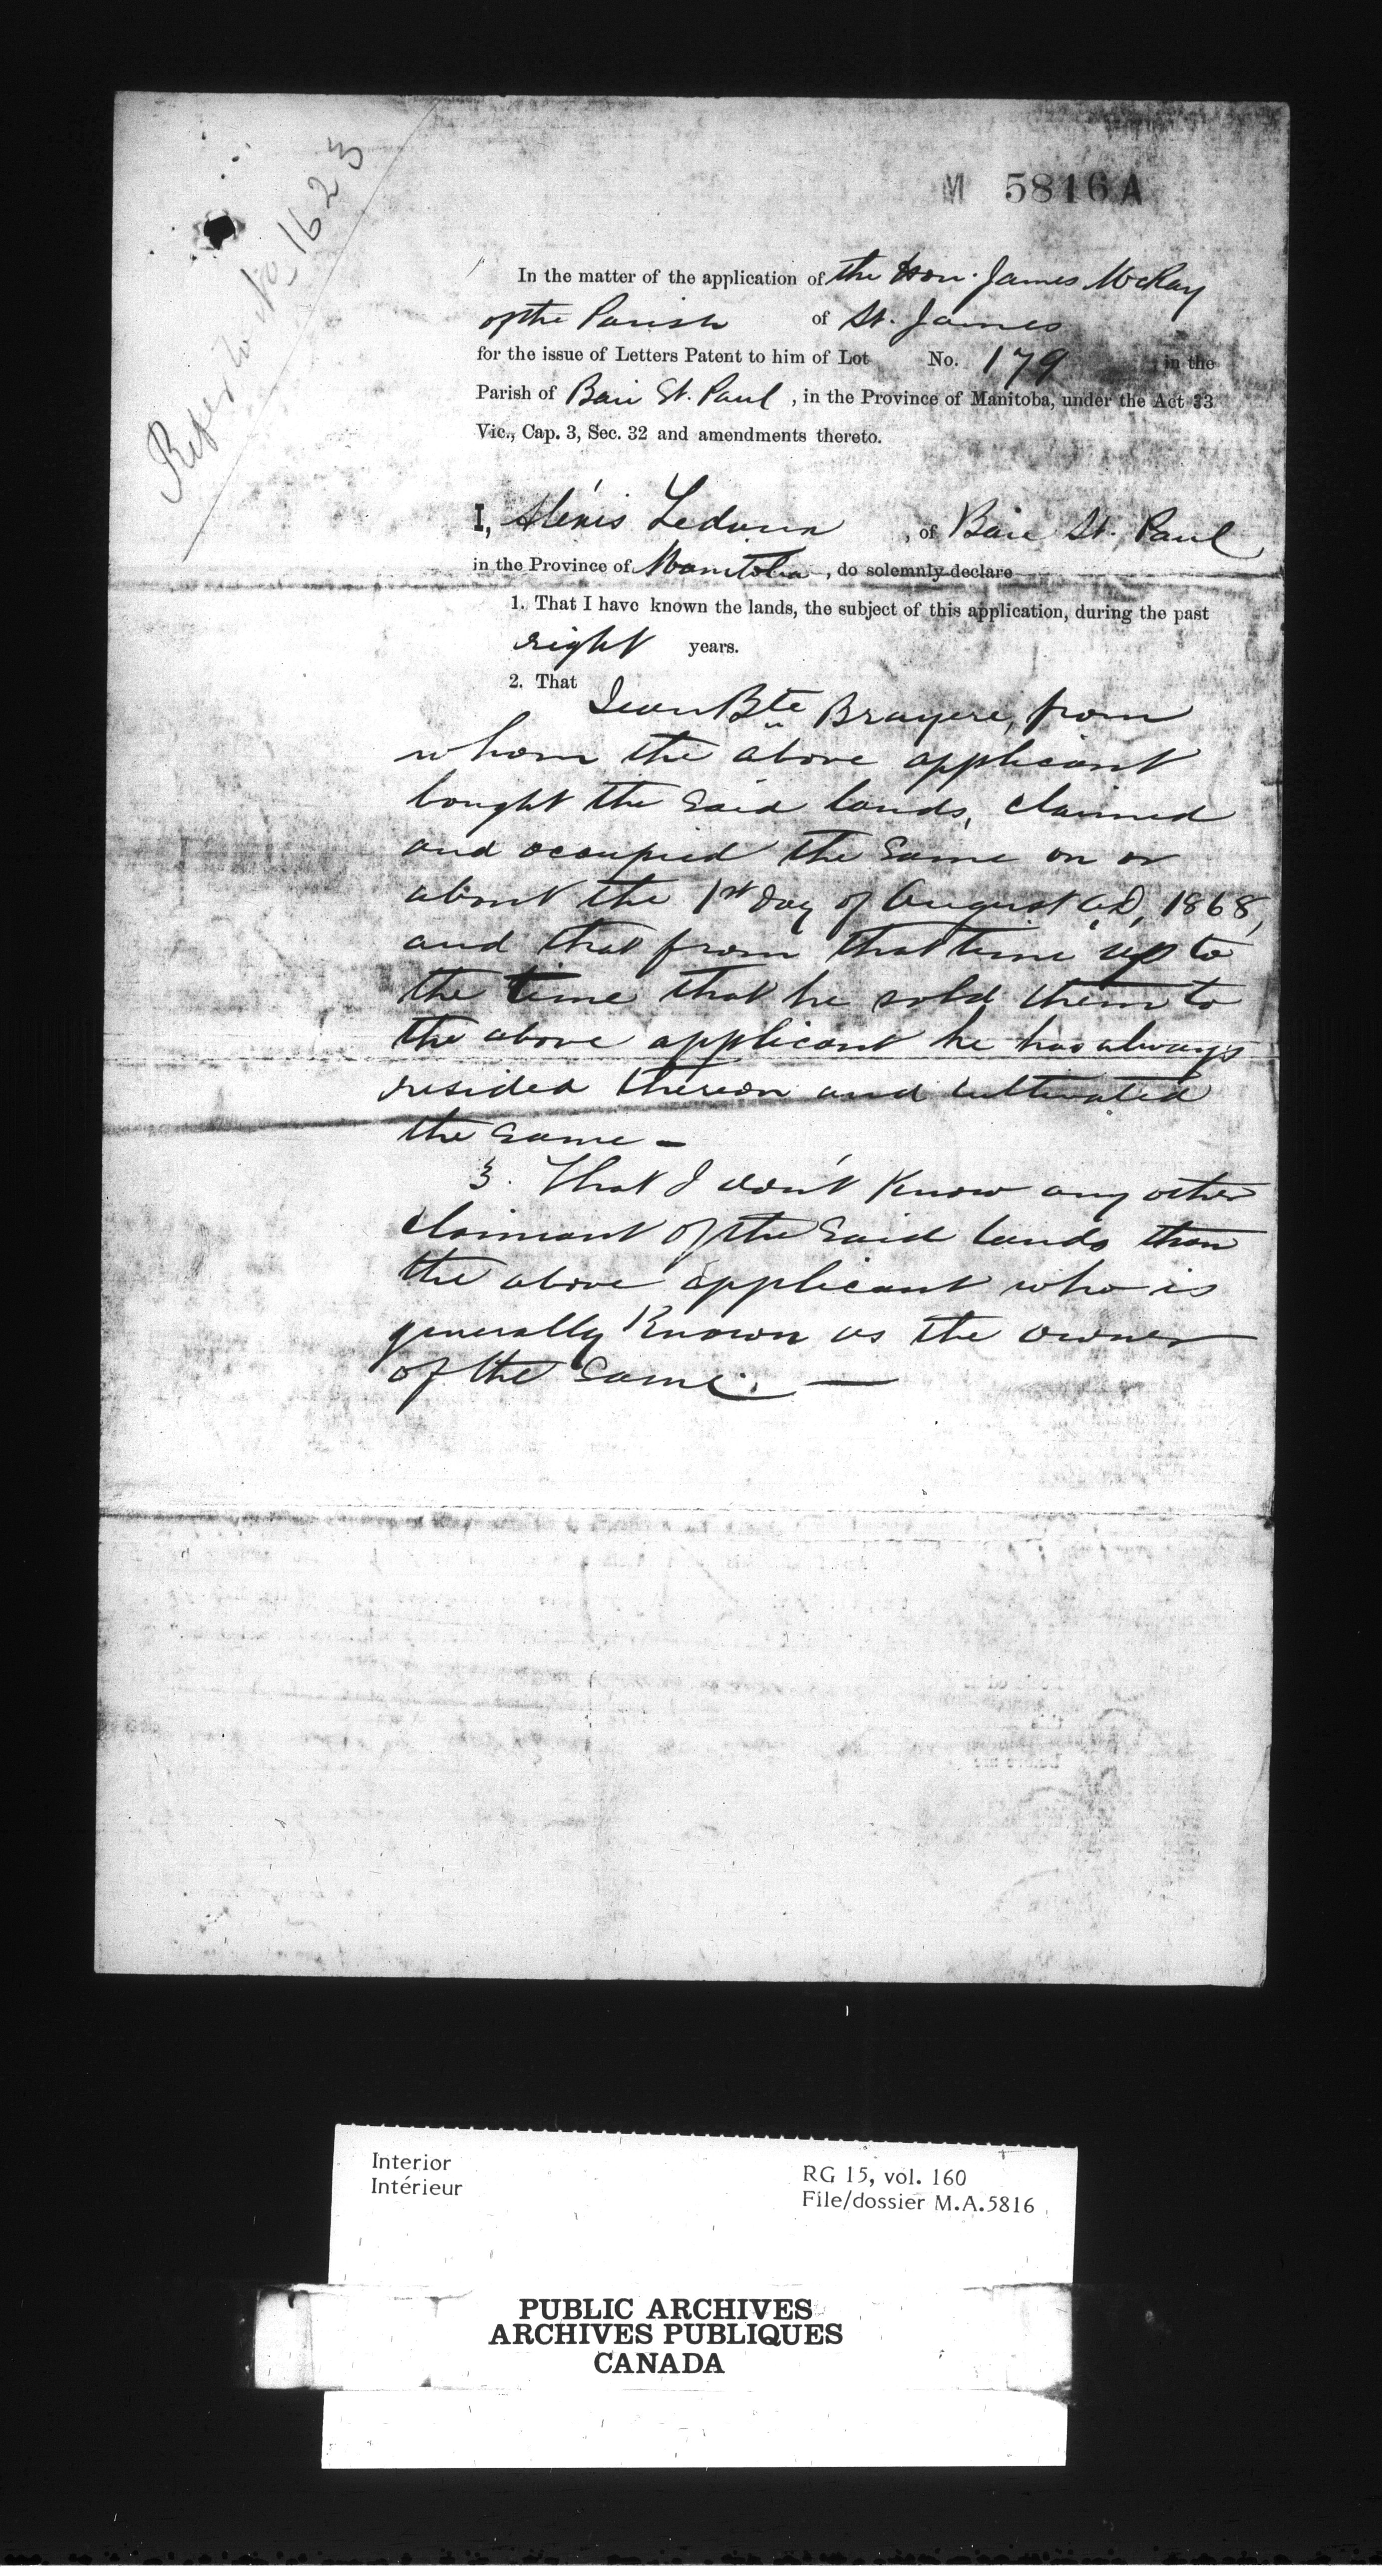 Refer to No 1623
M 5816 A
In the matter of the application of the Hon. James McKay
of the Parish of St. James
for the issue of Letters Patent to him of Lot No. 179 in the
Parish of Baie St. Paul, in the Province of Manitoba, under the Act 33
Vic., Cap. 3, Sec. 32 and amendments thereto.
I, Aléxis , of Baie St. Paul
in the Province of Manitoba, do solemnly declare
1. That I have known the lands, the subject of this application, during the past
eight years.
2. That
Jean Bte Brayere, from
whom the above applicant
bought the said lands, claimed
and occupied the same on or
about the 1st day of August A.D. 1868,
and that from that time up to
the time that he sold them to
the above applicant he has always
resided thereon and cultivated
the same -
3. That I don't know any other
claimant of the said lands than
the above applicant who is
generally known as the owner
of the same. —
Interior
Intérieur
RG 15, vol. 160
File/dossier M.A.5816
PUBLIC ARCHIVES
ARCHIVES PUBLIQUES
CANADA